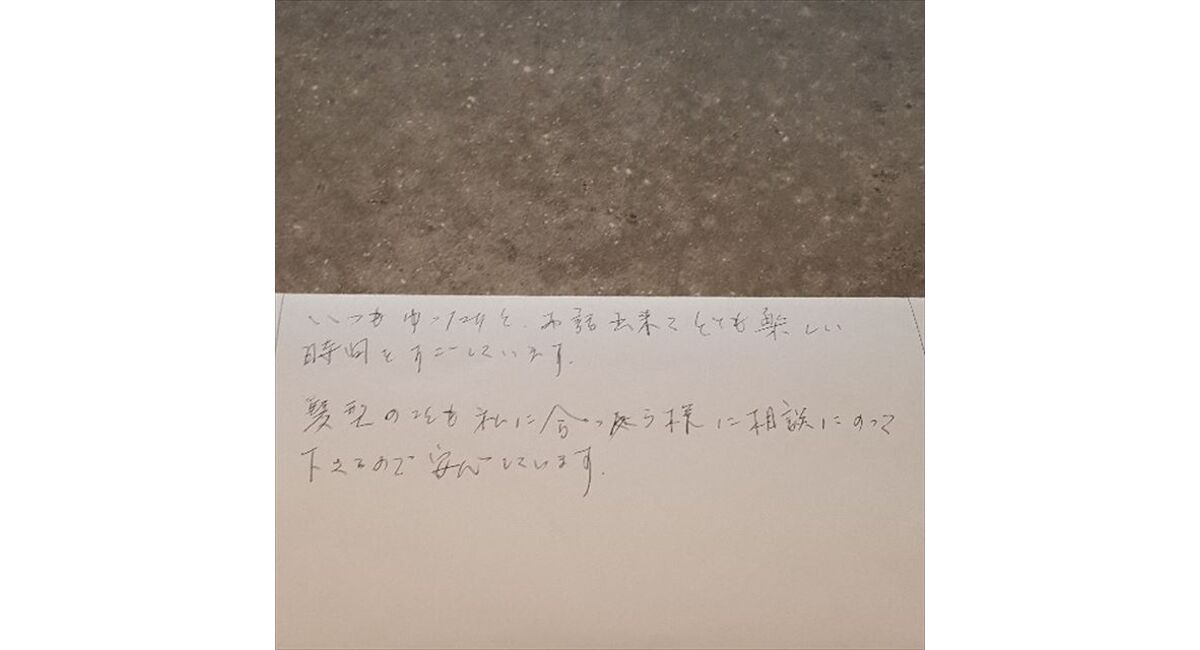 いつもゆったりと、お話出来てとても楽しい
時間をすごしています。
髪型のことも私に合う様に相談にのって
下さるので安心しています。